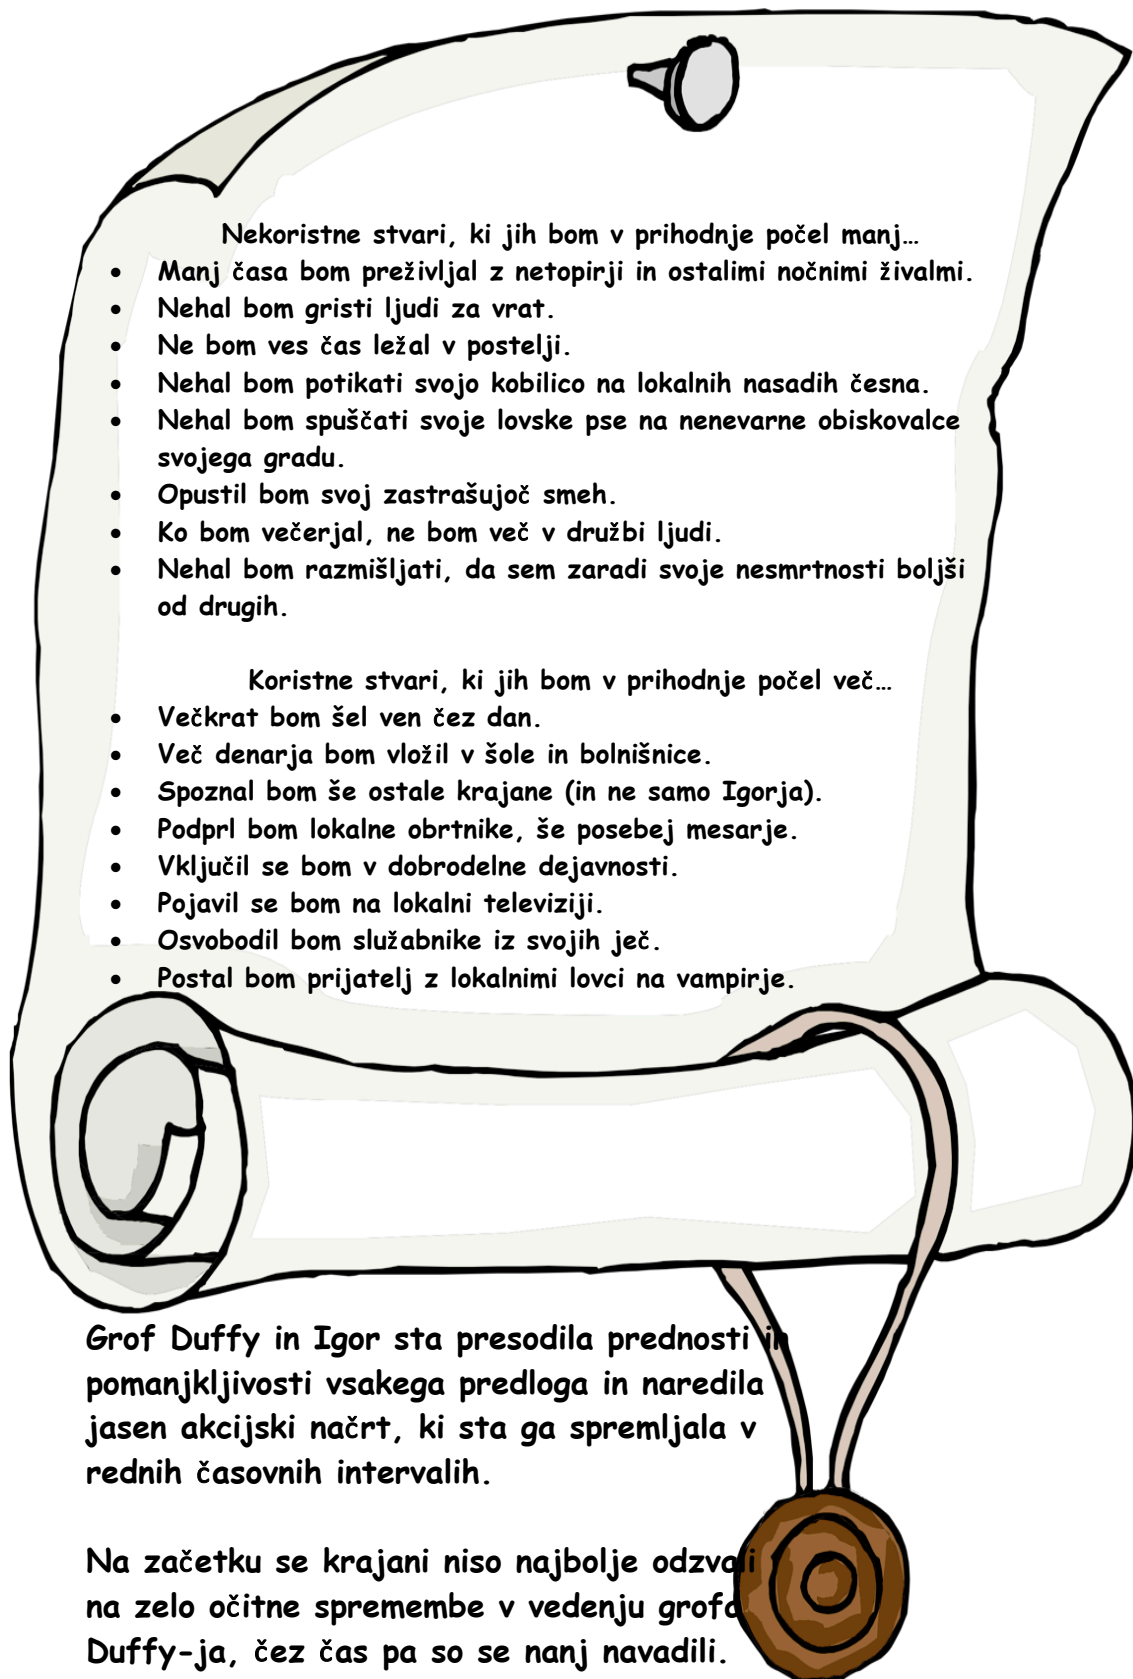 Nekoristne stvari, ki jih bom v prihodnje počel manj…
• Manj časa bom preživljal z netopirji in ostalimi nočnimi živalmi.
• Nehal bom gristi ljudi za vrat.
• Ne bom ves čas ležal v postelji.
• Nehal bom potikati svojo kobilico na lokalnih nasadih česna.
• Nehal bom spuščati svoje lovske pse na nenevarne obiskovalce
svojega gradu.
• Opustil bom svoj zastrašujoč smeh.
• Ko bom večerjal, ne bom več v družbi ljudi.
• Nehal bom razmišljati, da sem zaradi svoje nesmrtnosti boljši
od drugih.
Koristne stvari, ki jih bom v prihodnje počel več…
• Večkrat bom šel ven čez dan.
• Več denarja bom vložil v šole in bolnišnice.
• Spoznal bom še ostale krajane (in ne samo Igorja).
• Podprl bom lokalne obrtnike, še posebej mesarje.
• Vključil se bom v dobrodelne dejavnosti.
• Pojavil se bom na lokalni televiziji.
• Osvobodil bom služabnike iz svojih ječ.
• Postal bom prijatelj z lokalnimi lovci na vampirje.
Grof Duffy in Igor sta presodila prednosti in
pomanjkljivosti vsakega predloga in naredila
jasen akcijski načrt, ki sta ga spremljala v
rednih časovnih intervalih.
Na začetku se krajani niso najbolje odzvali
na zelo očitne spremembe v vedenju grofa
Duffy-ja, čez čas pa so se nanj navadili.